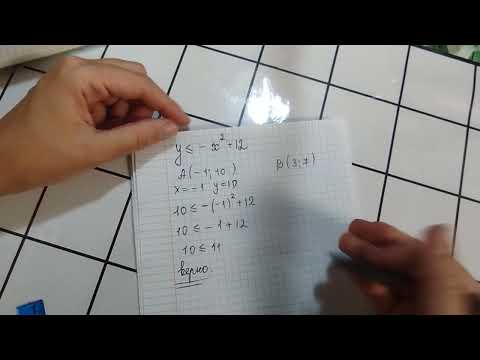 y ≤ - x² + 12
A (-1; 10)
x = -1 y = 10
10 ≤ - (-1)² + 12
10 ≤ - 1 + 12
10 ≤ 11
верно.
B (3; 7)